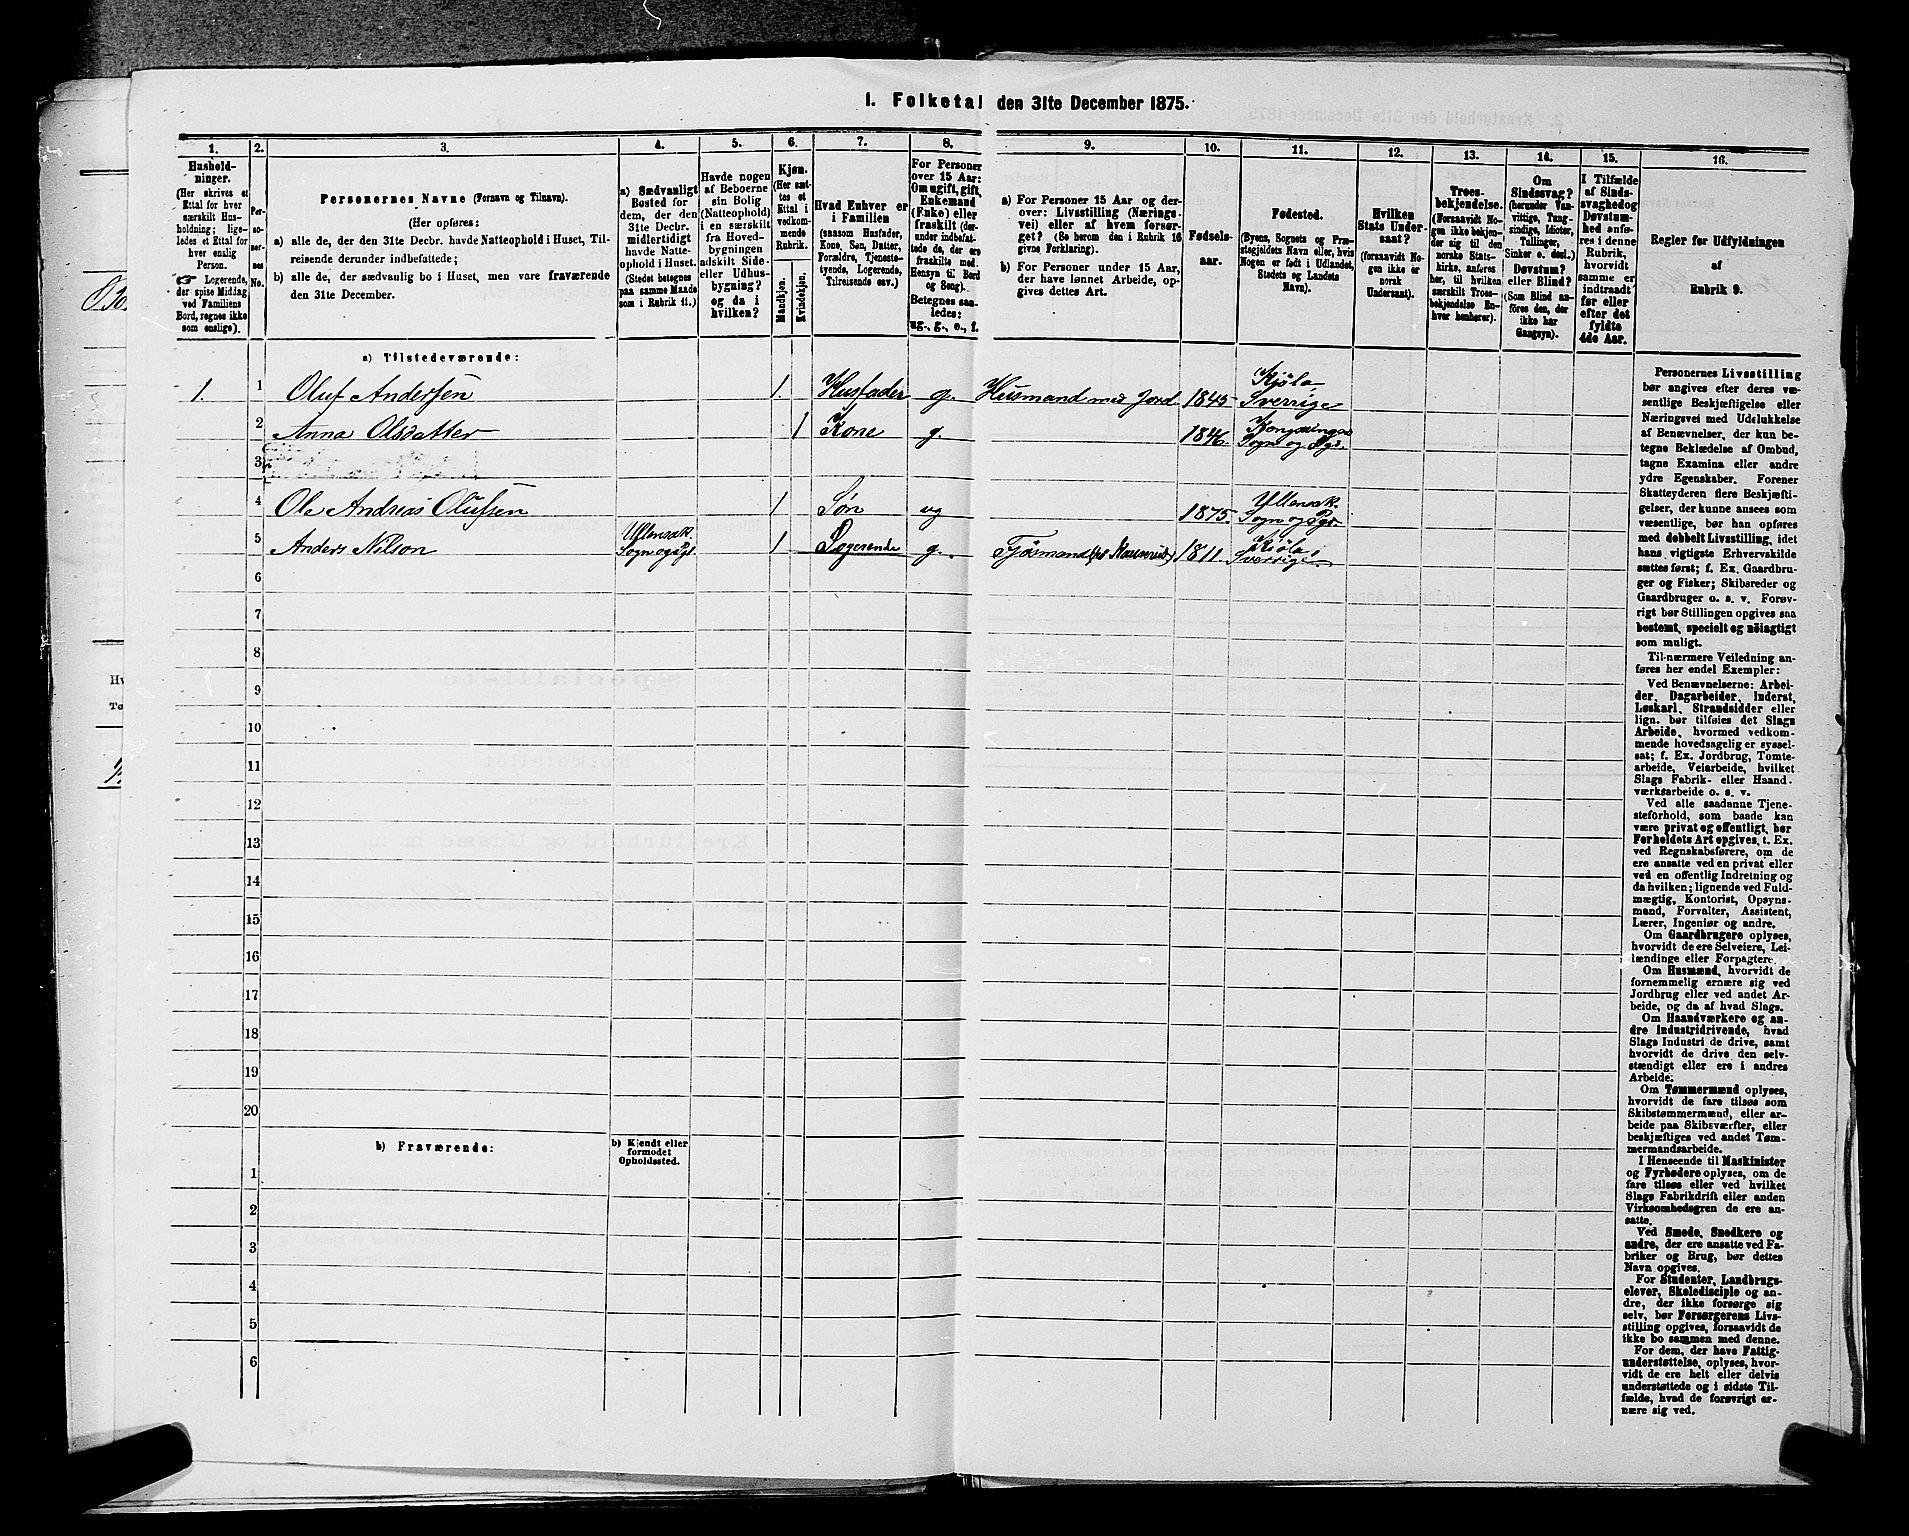 1. Folketal den 31te December 1875.
1.
2.
3.
4.
5.
6.
7.
8.
9.
10.
11.
12.
13.
14.
15.
16.
Hushold-
ninger.
(Her skrives et
Ettal for hver
særskilt Hus-
holdning; lige-
ledes et Ettal for
hver enslig
Person.
☞ Logerende,
der spise Middag
ved Familiens
Bord, regnes ikke
som enslige).
Per-
so-
ner-
nes
No.
Personernes Navne (Fornavn og Tilnavn).
(Her opføres:
a) alle de, der den 31te Decbr. havde Natteophold i Huset, Til-
reisende derunder indbefattede;
b) alle de, der sædvanlig bo i Huset, men vare fraværende
den 31te December.
a) Sædvanligt
Bosted for
dem, der den
31te Decbr.
midlertidigt
havde Natte-
ophold i Huset.
(Stedet betegnes
paa samme Maade
som i Rubrik 11.)
Havde nogen
af Beboerne
sin Bolig
(Natteophold)
i en særskilt
fra Hoved-
bygningen
adskilt Side-
eller Udhus-
bygning?
og da i
hvilken?
Kjøn.
(Her sæt-
tes et
Ettal i
vedkom-
mende
Rubrik.
Mandkjøn.
Kvindekjøn.
Hvad Enhver er
i Familien
(saasom Husfader,
Kone, Søn, Datter,
Forældre, Tjeneste-
tyende, Logerende,
Tilreisende osv.)
For Personer
over 15 Aar:
Om ugift, gift,
Enkemand
(Enke) eller
fraskilt (der-
under indbefat-
tede da, der ere
fraskilte med
Hensyn til Bord
og Seng).
Betegnes saa-
ledes:
ug., g., e., f.
a) For Personer 15 Aar og der-
over: Livsstilling (Nærings-
vei) eller af hvem forsør-
get? (Se herom den i Rubrik 16
givne Forklaring).
b) For Personer under 15 Aar,
der have lønnet Arbeide, op-
gives dettes Art.
Fødsels-
aar.
Fødested.
(Byens, Sognets og Præ-
stegjeldets Navn eller, hvis
Nogen er født i Udlandet,
Stedets og Landets
Navn).
Hvilken
Stats Under-
saat?
(forsaavidt No-
gen ikke er
norsk
Undersaat).
Troes-
bekjendelse.
(Forsaavidt No-
gen ikke bekjen-
der sig til den
norske Stats-
kirke, anføres
her, til hvilken
særskilt Troes-
bekjendelse En-
hver henhører).
Om
Sindssvag?
(herunder Van-
vittige, Tung-
sindige, Idioter,
Tullinger,
Sinker o. desl.).
Døvstum?
eller Blind?
(Som Blind an-
føres den, der
ikke har
Gangsyn).
I Tilfælde
af Sinds-
svaghed og
Døvstum-
hed anfø-
res i denne
Rubrik,
hvorvidt
samme er
indtraadt
før eller
efter det
fyldte
4de Aar.
Regler for Udfyldningen
af
Rubrik 9.
a) Tilstedeværende:
1. 1 Oluf Andersen 1. Husfader g. Husmand med Jord 1845 Kjöla Sverrige
2 Anna Olsdatter 1 Kone g. 1846. Sogn og Pgs.
3
4 Ole Andreas Olufsen 1 Søn ug 1875. Ullensak. Sogn og Pgs
5 Anders Nilson Ullensak. Sogn og Pgl 1 Logerende g. 1811. Kjöla i Sverrige
6
7
8
9
10
11
12
13
14
15
16
17
18
19
20
b) Fraværende:
b) Kjendt eller
formodet
Opholdssted.
1
2
3
4
5
6
Personernes Livsstilling
bør angives efter deres væ-
sentlige Beskjæftigelse eller
Næringsvei med Udelukkelse
af Benævnelser, der kun be-
tegne Beklædelse af Ombud,
tagne Examina eller andre
ydre Egenskaber. Forener
Skatteyderen flere Beskjæfti-
gelser, der kunne ansees som
væsentlige, bør han opføres
med dobbelt Livsstilling, idet
hans vigtigste Erhvervskilde
sættes først; f. Ex. Gaardbru-
ger og Fisker; Skibsreder og
Gaardbruger o. s. v. Forøv-
rigt bør Stillingen opgives saa
bestemt, specielt og nöiagtigt
som muligt.
Til nærmere Veiledning an-
føres her endel Exempler:
Ved Benævnelserne: Arbei-
der, Dagarbeider, Inderst,
Løskarl, Strandsidder eller
lign. bør tilføies det Slags
Arbeide, hvormed vedkom-
mende hovedsagelig er syssel-
sat; f. Ex. Jordbrug, Tomte-
arbeide, Veiarbeide, hvilket
Slags Fabrik- eller Haand-
værksarbeide o. s. v.
Ved alle saadanne Tjene-
steforhold, som baade kan
være privat og offentligt, bør
Forholdets Art opgives, t. Ex.
ved Regnskabsførere, om de
ere ansatte ved en privat eller
ved en offentlig Indretning og
da hvilken; lignende ved Fuld-
mægtig, Kontorist, Opsyns-
mand, Forvalter, Assistent,
Lærer, Ingeniør og andre.
Om Gaardbrugere oplyses,
hvorvidt de ere Selveiere, Lei-
lændinge eller Forpagtere.
Om Husmænd, hvorvidt de
fornemmelig ernære sig ved
Jordbrug eller ved andet Ar-
beide, og da af hvad Slags.
Om Haandværkere og an-
dre Industridrivende, hvad
Slags Industri de drive, samt
hvorvidt de drive den selv-
stændigt eller ere i andres
Arbeide.
Om Tømmermænd oplyses,
hvorvidt de fare tilsøs som
Skibstømmermænd, eller ar-
beide paa Skibsværfter, eller
beskjæftiges ved andet Tøm-
mermandsarbeide.
I Henseende til Maskinister
og Fyrbødere oplyses, om de
fare tilsøs eller ved hvilket
Slags Fabrikdrift eller anden
Virksomhedsgren de ere an-
satte.
Ved Smede, Snedkere og
andre, der ere ansatte ved Fa-
briker og Brug, bør dettes
Navn opgives.
For Studenter, Landbrugs-
elever, Skoledisciple og an-
dre, der ikke forsørge sig
selv, bør Forsørgerens Livs-
stilling opgives, forsaavidt de
ikke bo sammen med denne.
For dem, der have Fattig-
understøttelse, oplyses, hvor-
vidt de ere helt eller delvis
understøttede og i sidste Til-
fælde, hvad de forøvrigt er-
nære sig ved.